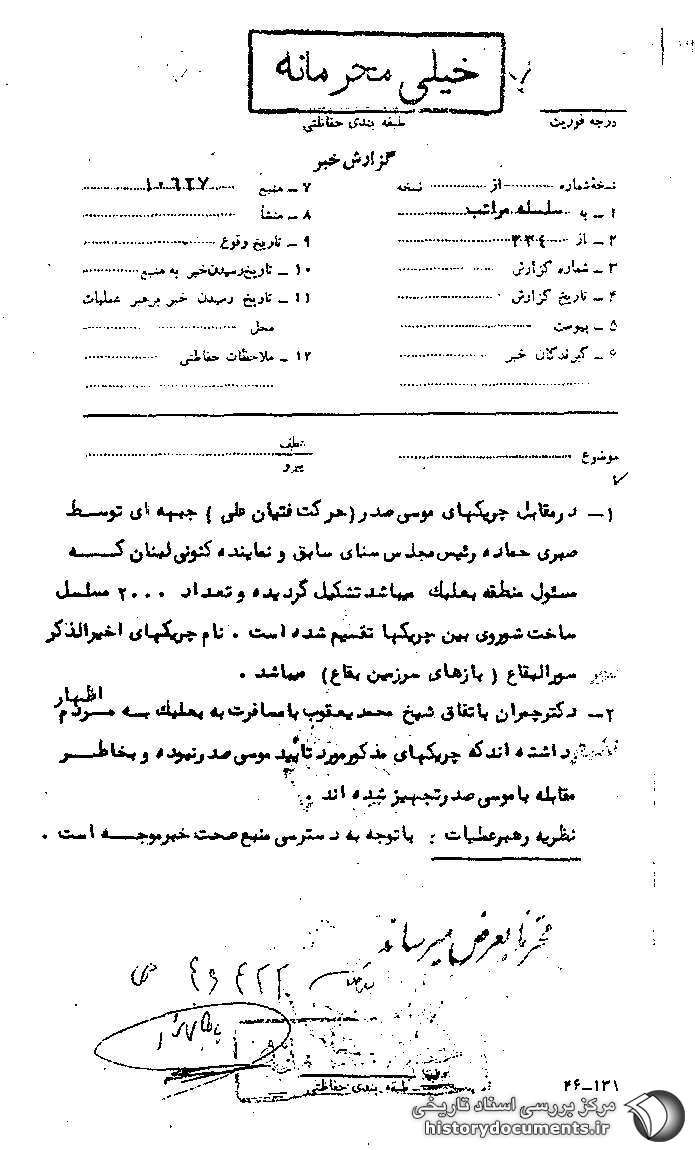 خیلی محرمانه
درجه فوریت
طبقه بندی حفاظتی
گزارش خبر
نسخه شماره از نسخه
۷ ــ منبع ۱۰۶۲۷
۱ ــ به سلسله مراتب
۸ ــ منشأ
۲ ــ از ۳۳٤
۹ ــ تاریخ وقوع
۳ ــ شماره گزارش
۱۰ ــ تاریخ رسیدن خبر به منبع
۴ ــ تاریخ گزارش
۱۱ ــ تاریخ رسیدن خبر برهبر عملیات
۵ ــ پیوست
محل
۶ ــ گیرندگان خبر
۱۲ ــ ملاحظات حفاظتی
موضوع
عطف
پیرو
۱ــ درمقابل چریکهای موسی صدر (حرکت فتیان علی) جبهه ای توسط
صبری حماده رئیس مجلس سنای سابق و نماینده کنونی لبنان کــه
مسئول منطقه بعلبک میباشد تشکیل گردیده و تعداد ۲۰۰۰ مسلسل
ساخت شوروی بین چریکها تقسیم شده است . نام چریکهای اخیرالذکر
سورالبقاع ( بازهای سرزمین بقاع ) میباشد .
۲ــ دکترچمران باتفاق شیخ محمد یعقوب بامسافرت به بعلبک به مــردم اظهار
داشته اندکه چریکهای مذکورمورد تأیید موسی صدرنبوده و بخاطــر
مقابله با موسی صدرتجهیز شده اند .
نظریه رهبرعملیات : باتوجه به دسترسی منبع صحت خبرموجــه است .
بعرض میرساند
طبقه بندی حفاظتی
۴۶ــ۱۳۱
مرکز بررسی اسناد تاریخی
historydocuments.ir